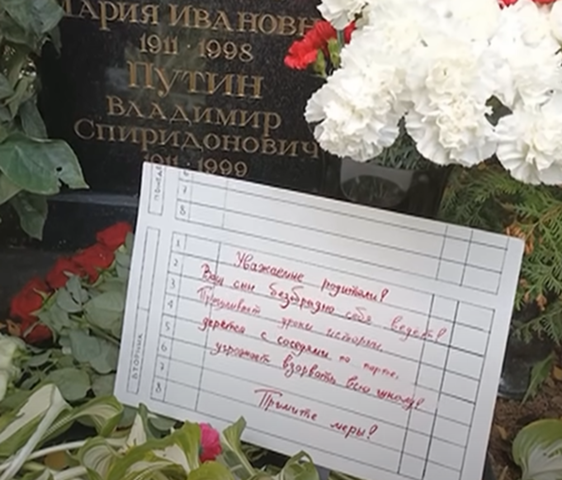 Мария Ивановн
1911 · 1998
Путин
Владимир
Спиридонович
1911 · 1999
7
8
вторник
1
2
3
4
5
6
7
8
Уважаемые родители!
Ваш сын безобразно себя ведет!
Прогуливает уроки истории,
дерется с соседями по парте,
угрожает взорвать всю школу!
Примите меры!